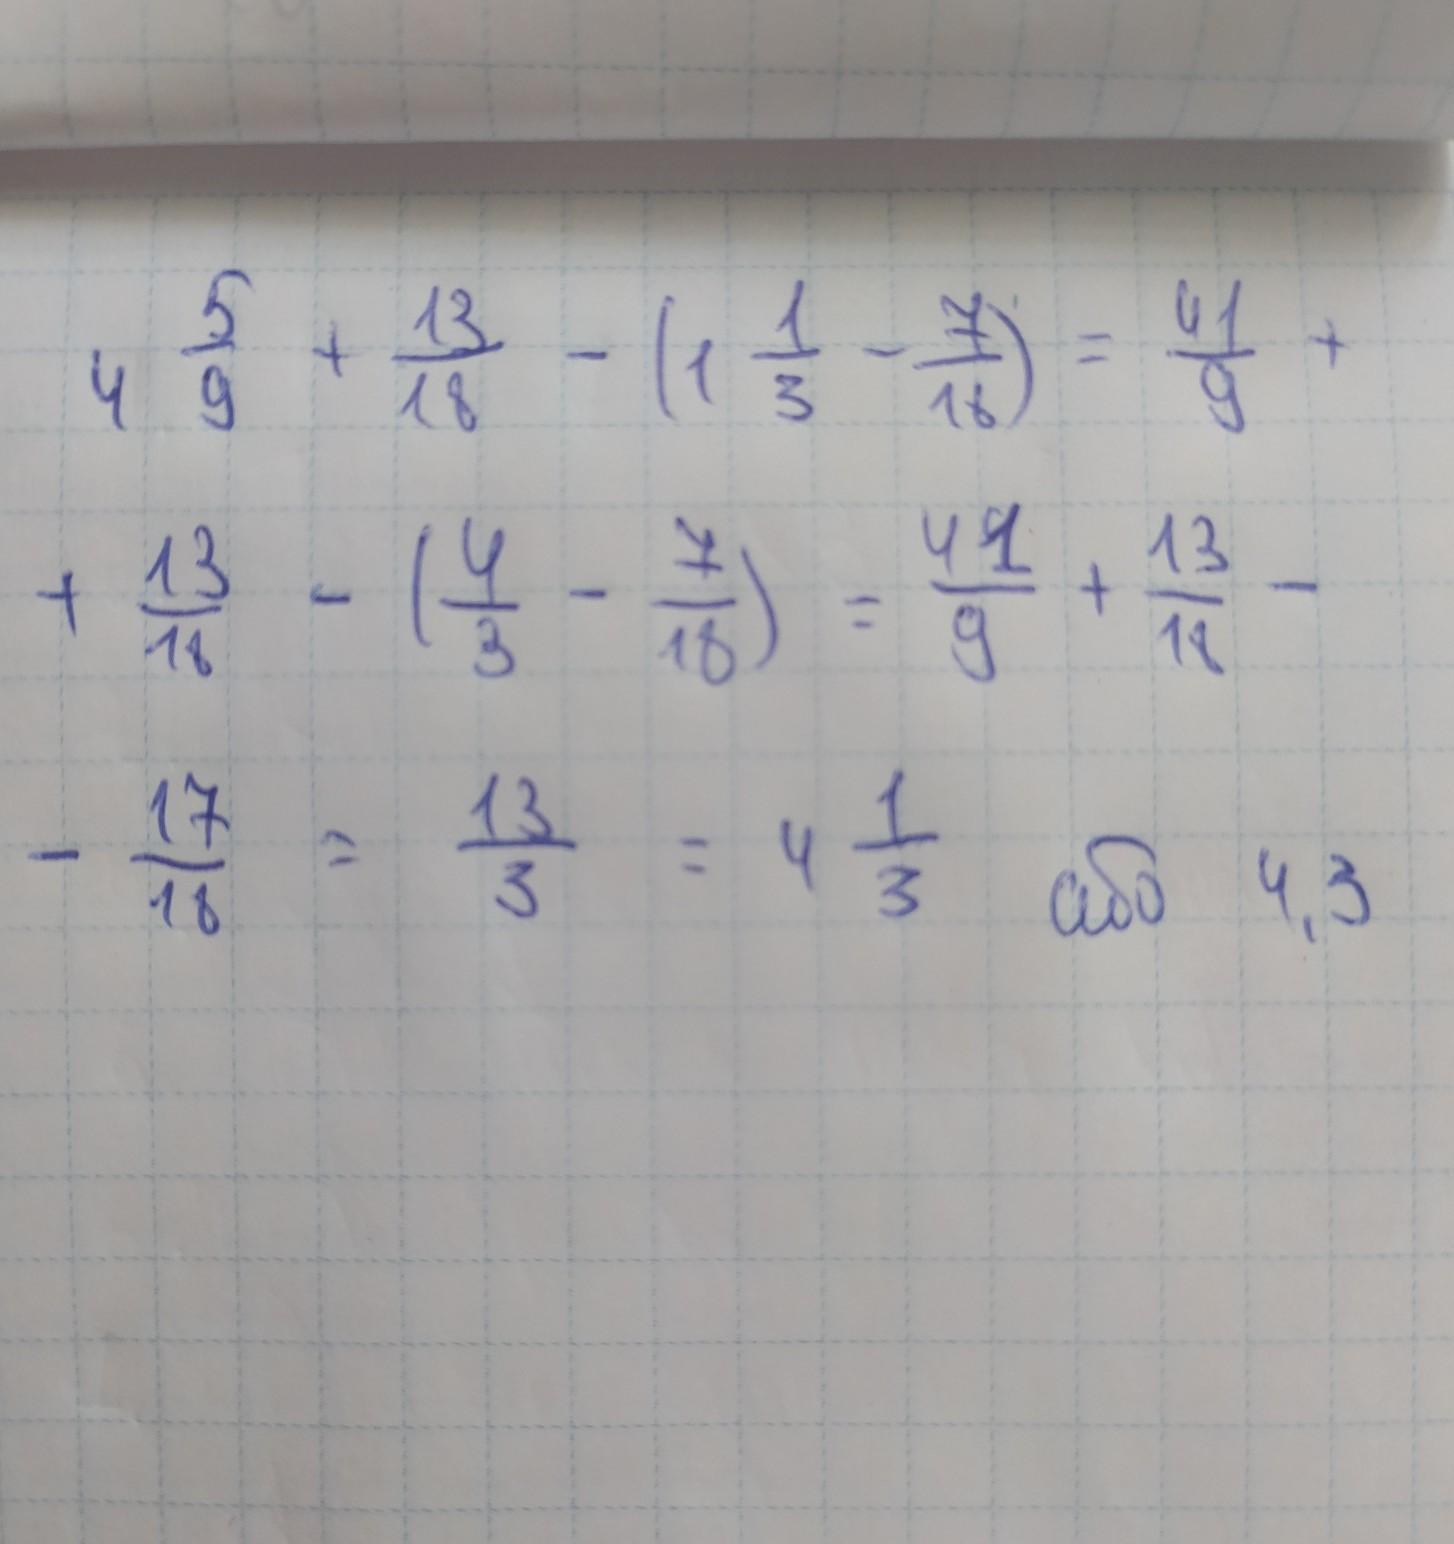 4 5/9 + 13/18 - (1 1/3 - 7/18) = 41/9 +
+ 13/18 - (4/3 - 7/18) = 41/9 + 13/18 -
- 17/18 = 13/3 = 4 1/3 або 4,3